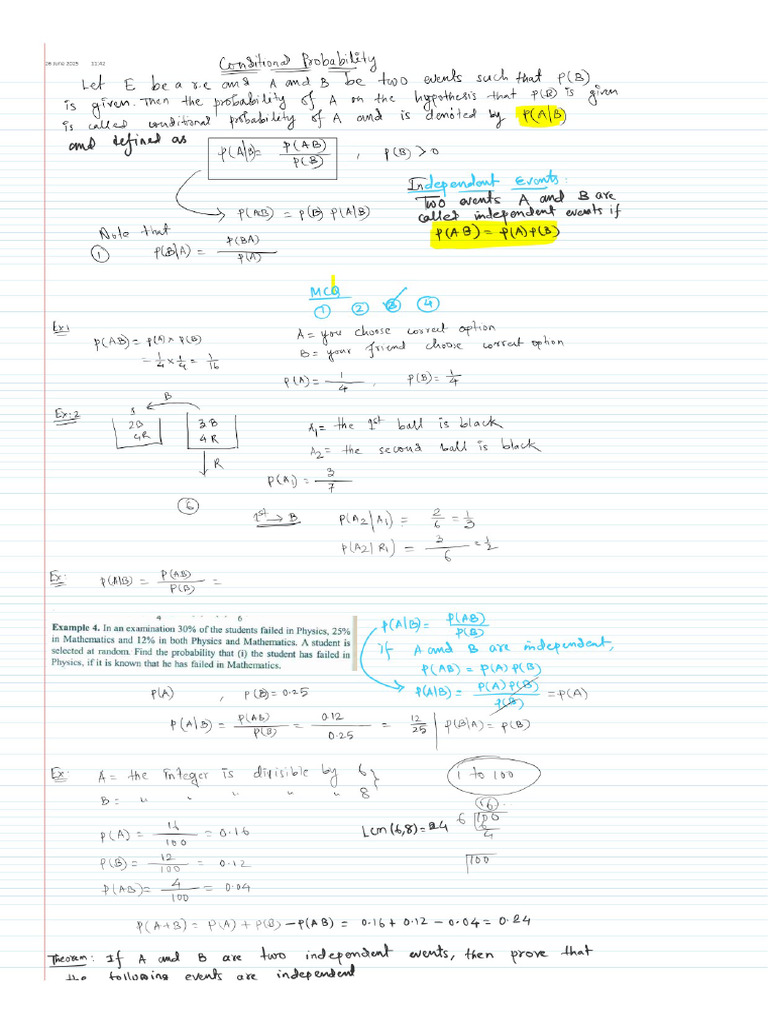 28 June 2025 11:42
Conditional Probability
Let E be a r.e and A and B be two events such that P(B)
is given. Then the probability of A on the hypothesis that P(B) is given
is called conditional probability of A and is denoted by P(A|B)
and defined as
P(A|B) = P(AB)/P(B) , P(B) > 0
→ P(AB) = P(B) P(A|B)
Independent Events:
Two events A and B are
called independent events if
P(AB) = P(A) P(B)
Note that
① P(B|A) = P(BA)/P(A)
MCQ
① ② ③ ④
Ex:1
P(AB) = P(A) × P(B)
= 1/4 × 1/4 = 1/16
A = you choose correct option
B = your friend choose correct option
P(A) = 1/4 , P(B) = 1/4
Ex:2
B
2B
4R
3B
4R
R
⑥
A₁ = the 1st ball is black
A₂ = the second ball is black
P(A₁) = 3/7
1st → B
P(A₂|A₁) = 2/6 = 1/3
P(A₂|R₁) = 3/6 = 1/2
Ex: P(A|B) = P(AB)/P(B) =
4 6
Example 4. In an examination 30% of the students failed in Physics, 25%
in Mathematics and 12% in both Physics and Mathematics. A student is
selected at random. Find the probability that (i) the student has failed in
Physics, if it is known that he has failed in Mathematics.
P(A|B) = P(AB)/P(B)
if A and B are independent,
P(AB) = P(A) P(B)
→ P(A|B) = P(A) P(B)/P(B) = P(A)
P(A) , P(B) = 0.25
P(A|B) = P(AB)/P(B) = 0.12/0.25 = 12/25 | P(B|A) = P(B)
Ex: A = the integer is divisible by 6 }
B = " " " " " 8
1 to 100
P(A) = 16/100 = 0.16
P(B) = 12/100 = 0.12
P(AB) = 4/100 = 0.04
Lcm(6,8) = 24
16
6 100
6
4
100
P(A+B) = P(A) + P(B) - P(AB) = 0.16 + 0.12 - 0.04 = 0.24
Theorem: If A and B are two independent events, then prove that
the following events are independent